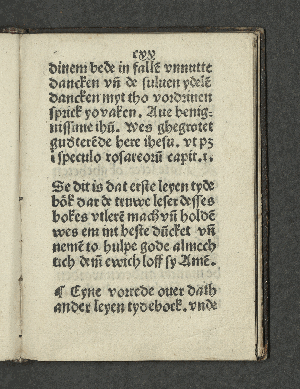 cxv
dinem bede in fallē vnnutte
dancken vñ de suluen ydelē
dancken myt tho vordriuen
sprick yovaken. Aue benig⸗
nissime ihū. Wes ghegrotet
gudterēde here ihesu. vt pȝ
i speculo rosareorū capit.i.
Se dit is dat erste leyen tyde
bōk dar de truwe leser desses
bokes vtlerē mach vñ holdē
wes em int beste dücket vñ
nemē to hulpe gode almech
tich dem ewich loff sy Amē.
¶ Eyne vorrede ouer dath
ander leyen tydebock. vnde